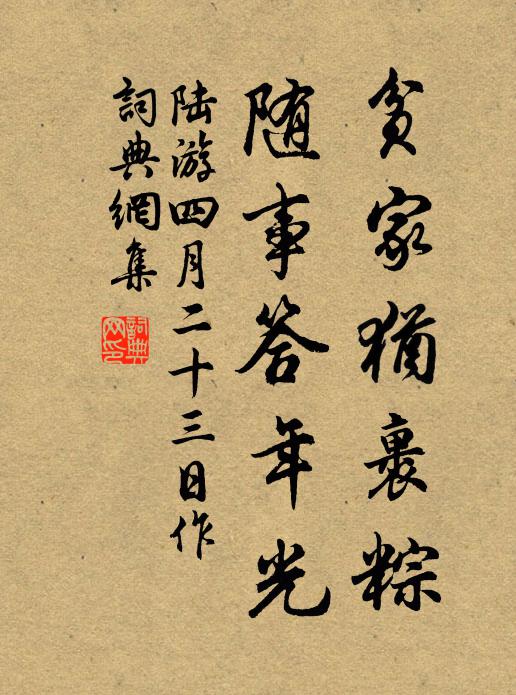 貧家猶裹粽
随事答年光
陆游四月二十三日作
詞典網集
詞典
网印